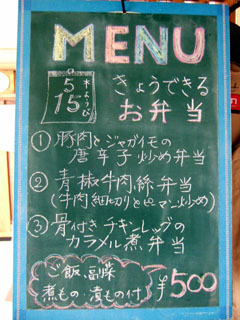 MENU
5
15
木ようび
きょうできる
お弁当
① 豚肉とジャガイモの
唐辛子炒め弁当
② 青椒牛肉絲弁当
(牛肉細切りとピーマン炒め)
③ 骨付きチキンレッグの
カラメル煮弁当
ご飯、副菜
煮もの・漬もの付
¥500